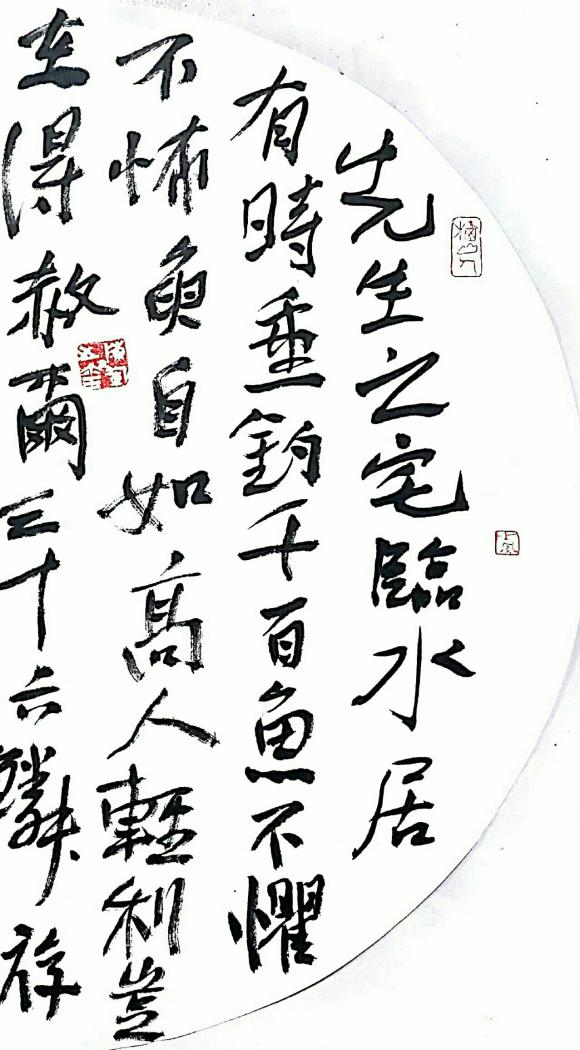 先生之宅臨水居
有時垂釣千百魚不懼
不怖魚自如高人輕利豈
在得赦爾三十六鱗存